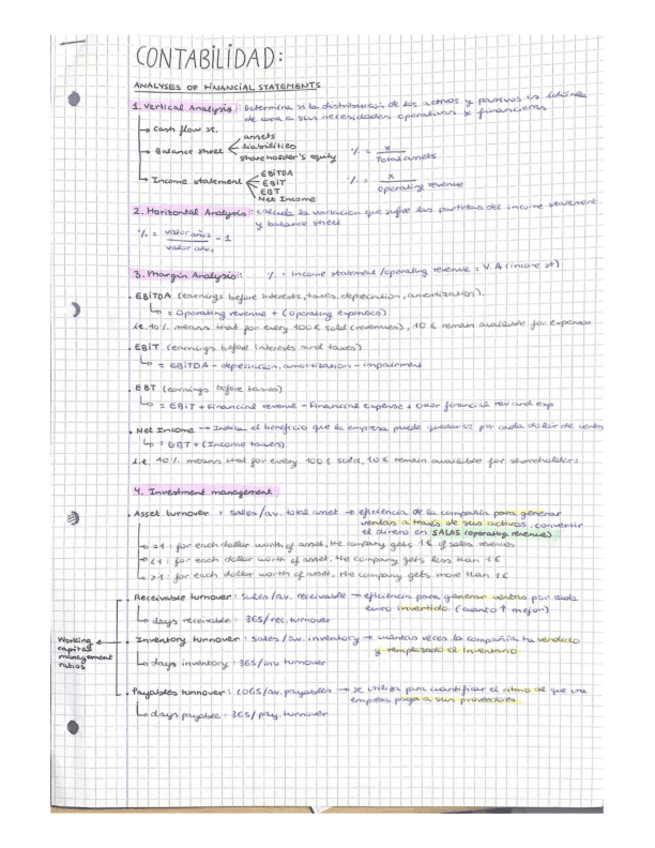 CONTABILIDAD:
ANALYSES OF FINANCIAL STATEMENTS
1. Vertical Analysis: Determina si la distribución de los activos y pasivos es idónea
de cara a sus necesidades operativas y financieras
Cash flow st.
Balance sheet
assets
liabilities
shareholder's equity
% = x / Total assets
Income statement
EBITDA
EBIT
EBT
Net Income
% = x / Operating revenue
2. Horizontal Analysis: calcula la variación que sufre las partidas del income statement
y balance sheet
% = valor año2 / valor año1 - 1
3. Margin Analysis: % = Income statement /operating revenue = V.A (income st)
EBITDA (earnings before interests, taxes, depreciation, amortization).
= Operating revenue + (Operating expenses)
i.e. 10% means that for every 100€ sold (revenues), 10€ remain available for expenses
EBIT (earnings before interests and taxes)
= EBITDA - depreciation, amortization - impairment
EBT (earnings before taxes)
= EBIT + Financial revenue - Financial expense + Other financial rev and exp
Net Income → Indica el beneficio que la empresa puede quedarse por cada dólar de ventas
= EBT + (Income taxes)
i.e. 10% means that for every 100€ sold, 10€ remain available for shareholders
4. Investment management
Asset turnover = sales/av. total asset → eficiencia de la compañía para generar
ventas a través de sus activos, convertir
el dinero en SALES (operating revenue)
=1: for each dollar worth of asset, the company gets 1€ of sales revenues
<1: for each dollar worth of asset, the company gets less than 1€
>1: for each dollar worth of asset, the company gets more than 1€
Working capital management ratios
Receivable turnover: sales/av. receivable → eficiencia para generar ventas por cada
euro invertido (cuanto ↑ mejor)
days receivable: 365/rec. turnover
Inventory turnover: sales/av. inventory → cuantas veces la compañía ha vendido
y remplazado el inventario
days inventory: 365/inv. turnover
Payables turnover: COGS/av. payables → se utiliza para cuantificar el ritmo al que una
empresa paga a sus proveedores
days payable: 365/pay. turnover